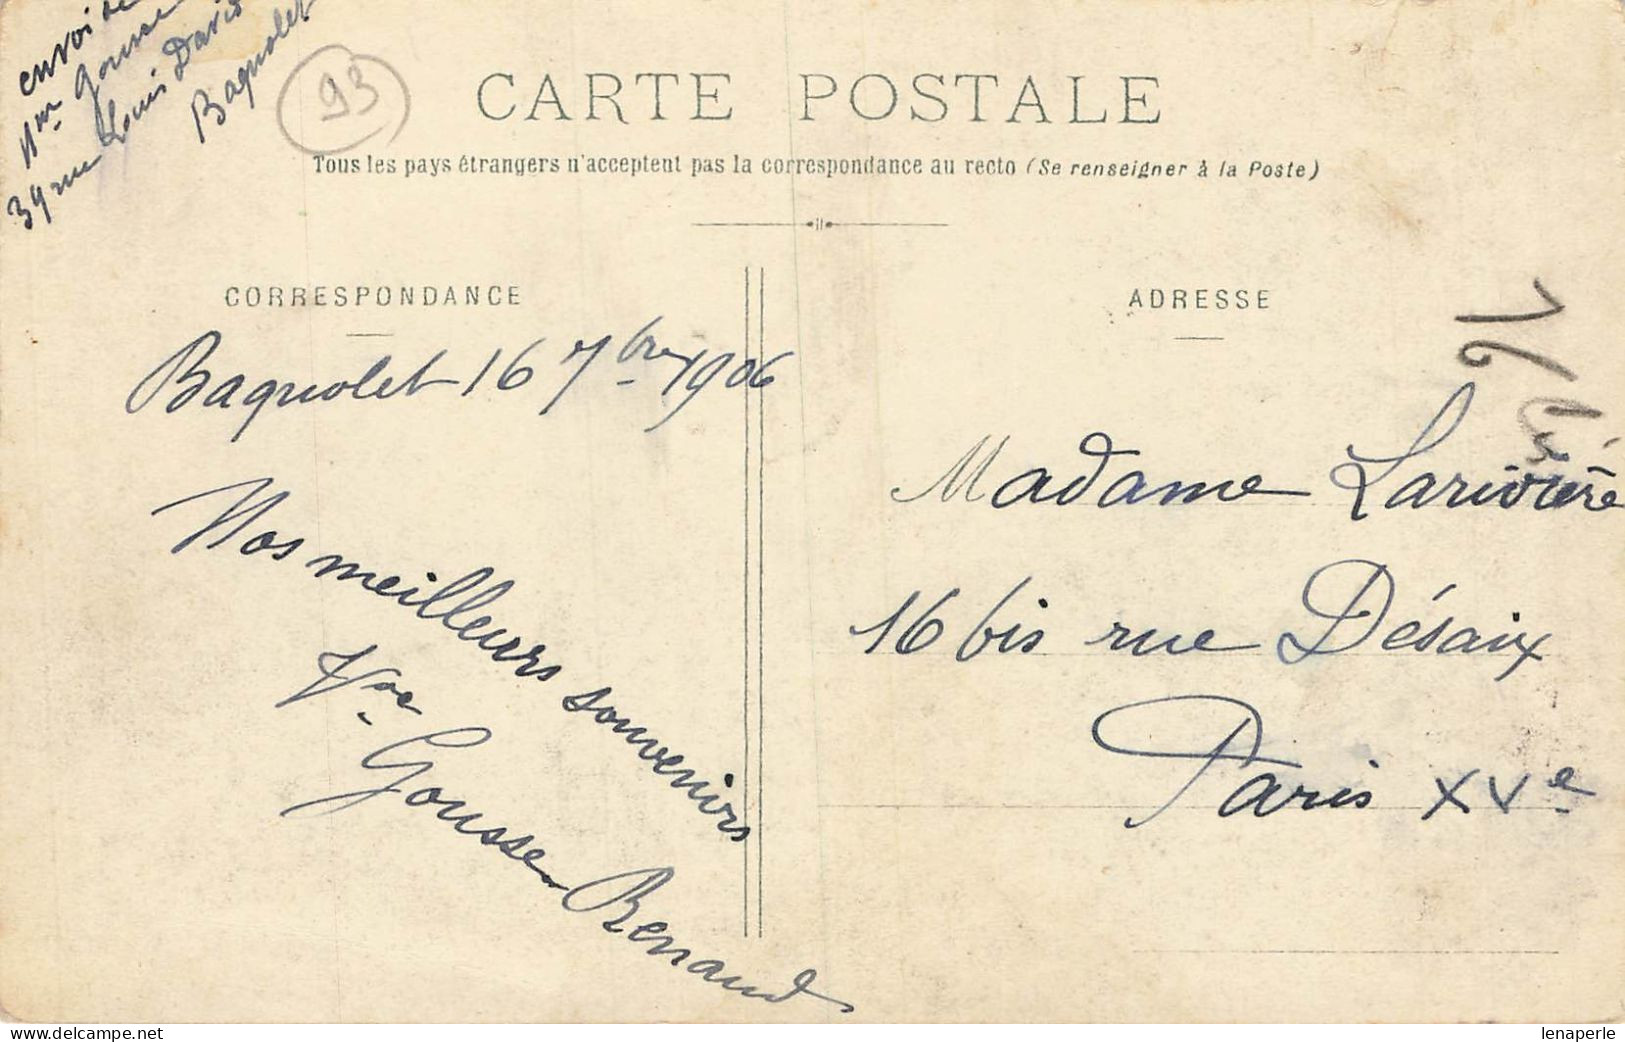 envoi de
Mme Gousse
39 rue Louis David
Bagnolet
93
CARTE POSTALE
Tous les pays étrangers n'acceptent pas la correspondance au recto (Se renseigner à la Poste)
CORRESPONDANCE
Bagnolet 16 7bre 1906
Nos meilleurs souvenirs
Vve Gousse Renaud
ADRESSE
Madame Larivière
16 bis rue Désaix
Paris XVe
delcampe.net
lenaperle